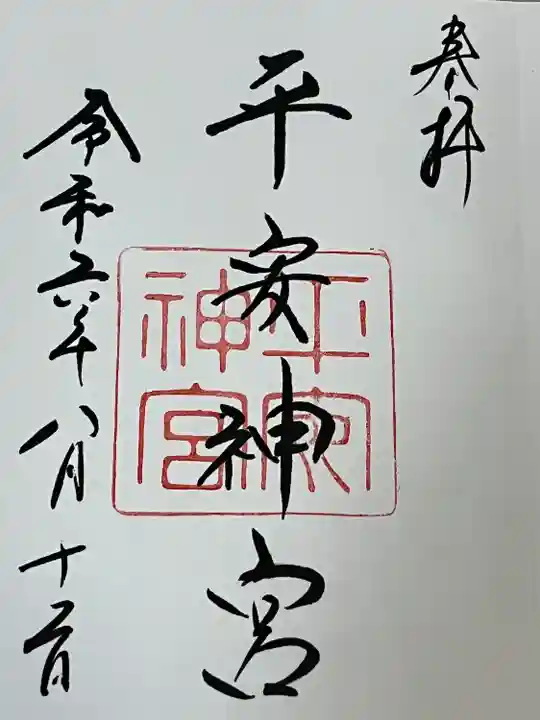 奉拝
平安神宮
平安
神宮
令和六年八月十二日